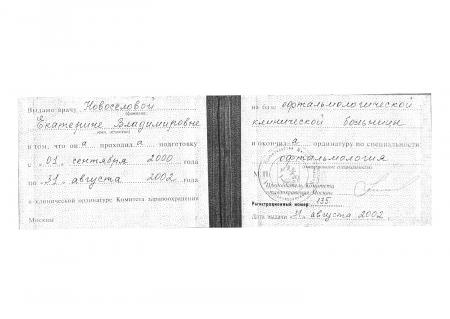 Выдано врачу Новоселовой
(фамилия)
Екатерине Владимировне
(имя, отчество)
в том, что она проходила подготовку
с "01" сентября 2000 года
по "31" августа 2002 года
в клинической ординатуре Комитета здравоохранения
Москвы
на базе офтальмологической
клинической больницы
и окончила ординатуру по специальности
офтальмология
М.П.
Председатель Комитета
здравоохранения Москвы
Регистрационный номер 135
Дата выдачи "31" августа 2002 г.